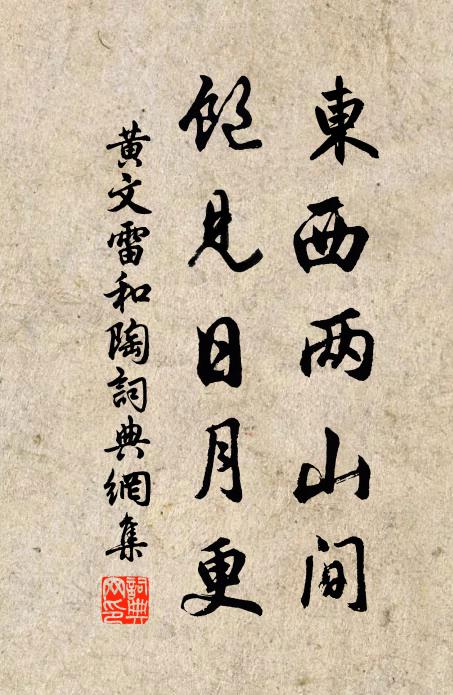 東西两山間
飽見日月更
黄文雷和陶詞典網集
詞典网印